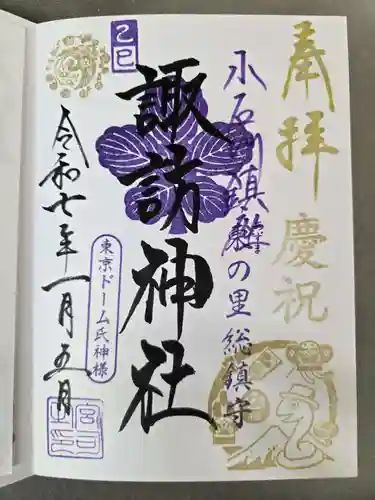 奉拝 慶祝
小石川 の里 総鎮守
乙巳
諏訪神社
東京ドーム氏神様
令和七年一月五日
宮司之印